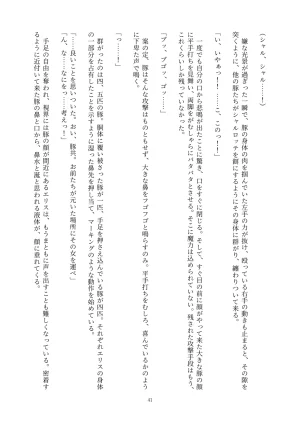 （シャル、シャル……！）
嫌な光景が過ぎった一瞬で、豚の身体の肉を掴んでいた左手の力が抜け、殴っている右手の動きも止まると、その隙を
突くように、他の豚たちがシャルロッテをダメにするようにその身体に群がり、纏わりついて来る。
「い、いやぁっ！！……こ、このっ！」
一度でも自分の口から悲鳴が出たことに驚き、口をすぐに閉じる。そして、すぐ目の前に顔がやって来た大きな豚の顔
に平手打ちを見舞い、両脚をがむしゃらにバタバタとさせる。そこに魔力は込められていない。残された攻撃手段はもう、
これくらいしか残っていなかった。
「ブッ、ブブッ、ゴッ……」
案の定、豚はそんな攻撃はものともせず、大きな鼻をフゴフゴと鳴らすのみ。平手打ちをむしろ、喜んでいるかのよう
に下卑た声で鳴く。
「っ……！」
群がったのは四、五匹の豚。胴体に魔人に被さった豚が一匹、手足を押さえ込んでいる豚が四匹。それぞれエリスの身体
の一部分を占有したことを示すように湿った鼻先を押し当て、マーキングのような動作を始めていた。
「……良いことを思いついた。おい、豚共。お前たちが元いた場所にその女を運べ」
「ん、な……なにを……考え、ッ！」
手足の自由を奪われ、視界には豚の顔が間近にあるエリスは、もうまともに声を出すことも難しくなっていた。密着す
るように近付いて来た豚の鼻と口から、鼻水と涎と思われる液体が、顔に垂れてくる。
41